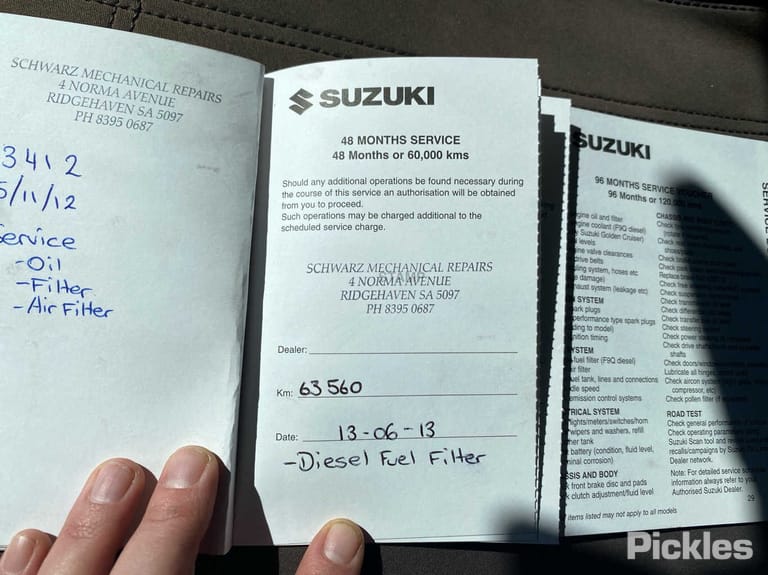 SCHWARZ MECHANICAL REPAIRS
4 NORMA AVENUE
RIDGEHAVEN SA 5097
PH 8395 0687
3412
5/11/12
Service
-Oil
-Filter
-Air Filter
SUZUKI
48 MONTHS SERVICE
48 Months or 60,000 kms
Should any additional operations be found necessary during
the course of this service an authorisation will be obtained
from you to proceed.
Such operations may be charged additional to the
scheduled service charge.
STAMP
SCHWARZ MECHANICAL REPAIRS
4 NORMA AVENUE
RIDGEHAVEN SA 5097
PH 8395 0687
Dealer:
Km: 63 560
Date: 13-06-13
-Diesel Fuel Filter
SUZUKI
96 MONTHS SERVICE VOUCHER
96 Months or 120,000 kms
oil and filter
coolant (F9Q diesel)
Suzuki Golden Cruiser)
levels
valve clearances
drive belts
system, hoses etc
damage)
system (leakage etc)
SYSTEM
plugs
performance type spark plugs
to model)
timing
fuel filter (F9Q diesel)
filter
tank, lines and connections
speed
emission control systems
SYSTEM
lights/meters/switches/horn
wipers and washers, refill
tank
battery (condition, fluid level,
corrosion)
AND BODY
front brake disc and pads
clutch adjustment/fluid level
items listed may not apply to all models
Check
Check
Check
Check
Check
Check
Check steering
Check power
Check drive
shafts
Check
Lubricate all
Check aircon
compressor, etc)
Check pollen filter
ROAD TEST
Check general performance of
Check operating
Suzuki Scan tool and
recalls/campaigns by Suzuki
Dealer network.
Note: For detailed service
information always refer to your
Authorised Suzuki Dealer.
29
SERVICE
Pickles